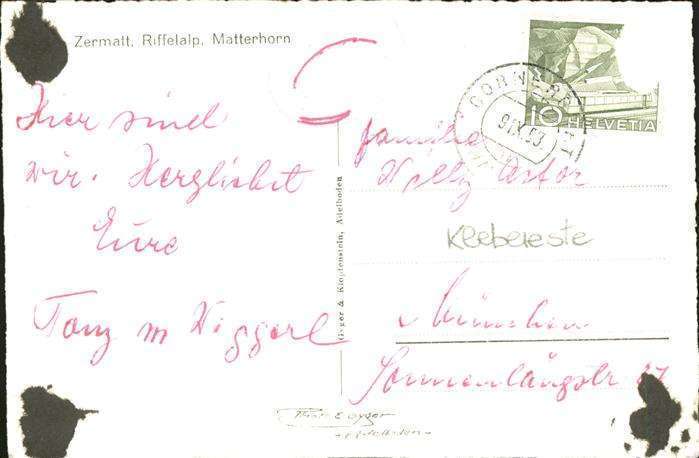 Zermatt, Riffelalp, Matterhorn
Hier sind
wir. Herzlichst
Eure
Tony m Wiggerl
Gyger & Klopfenstein, Adelboden
GORNERGRAT
9.IX.53.
10 HELVETIA
Familie
Willy
Klebereste
München
Sonnenlängstr 27
Photo E Gyger
Adelboden